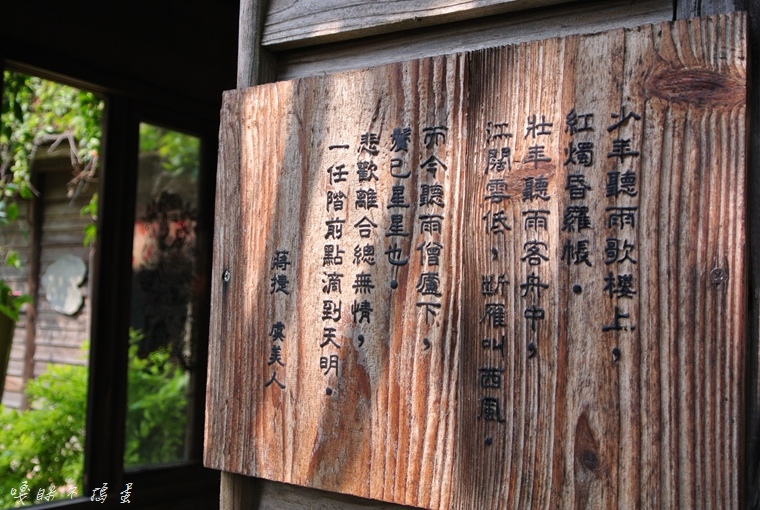 少年聽雨歌樓上，
紅燭昏羅帳．
壯年聽雨客舟中，
江闊雲低，斷雁叫西風．
而今聽雨僧廬下，
鬢已星星也．
悲歡離合總無情，
一任階前點滴到天明．
蔣捷 虞美人